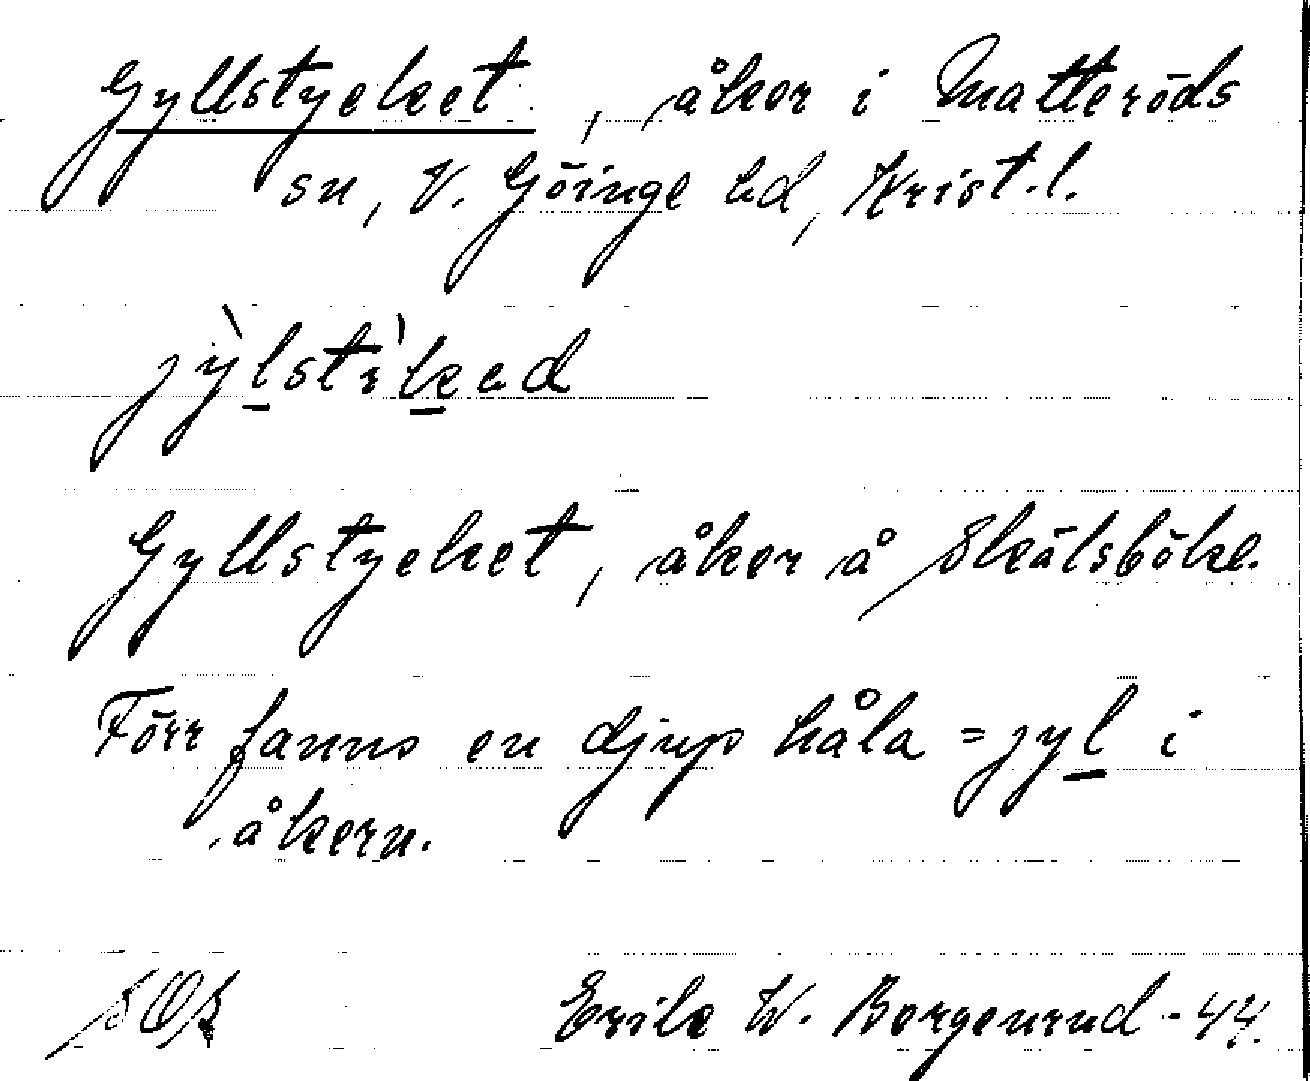 Gyllstycket, åker i Matteröds
sn, V. Göinge hd, Krist. l.
jỳlstìkəd
Gyllstycket, åker å Skälsböke.
Förr fanns en djup håla = jyl i
åkern.
Erik W. Bergenrud - 44.